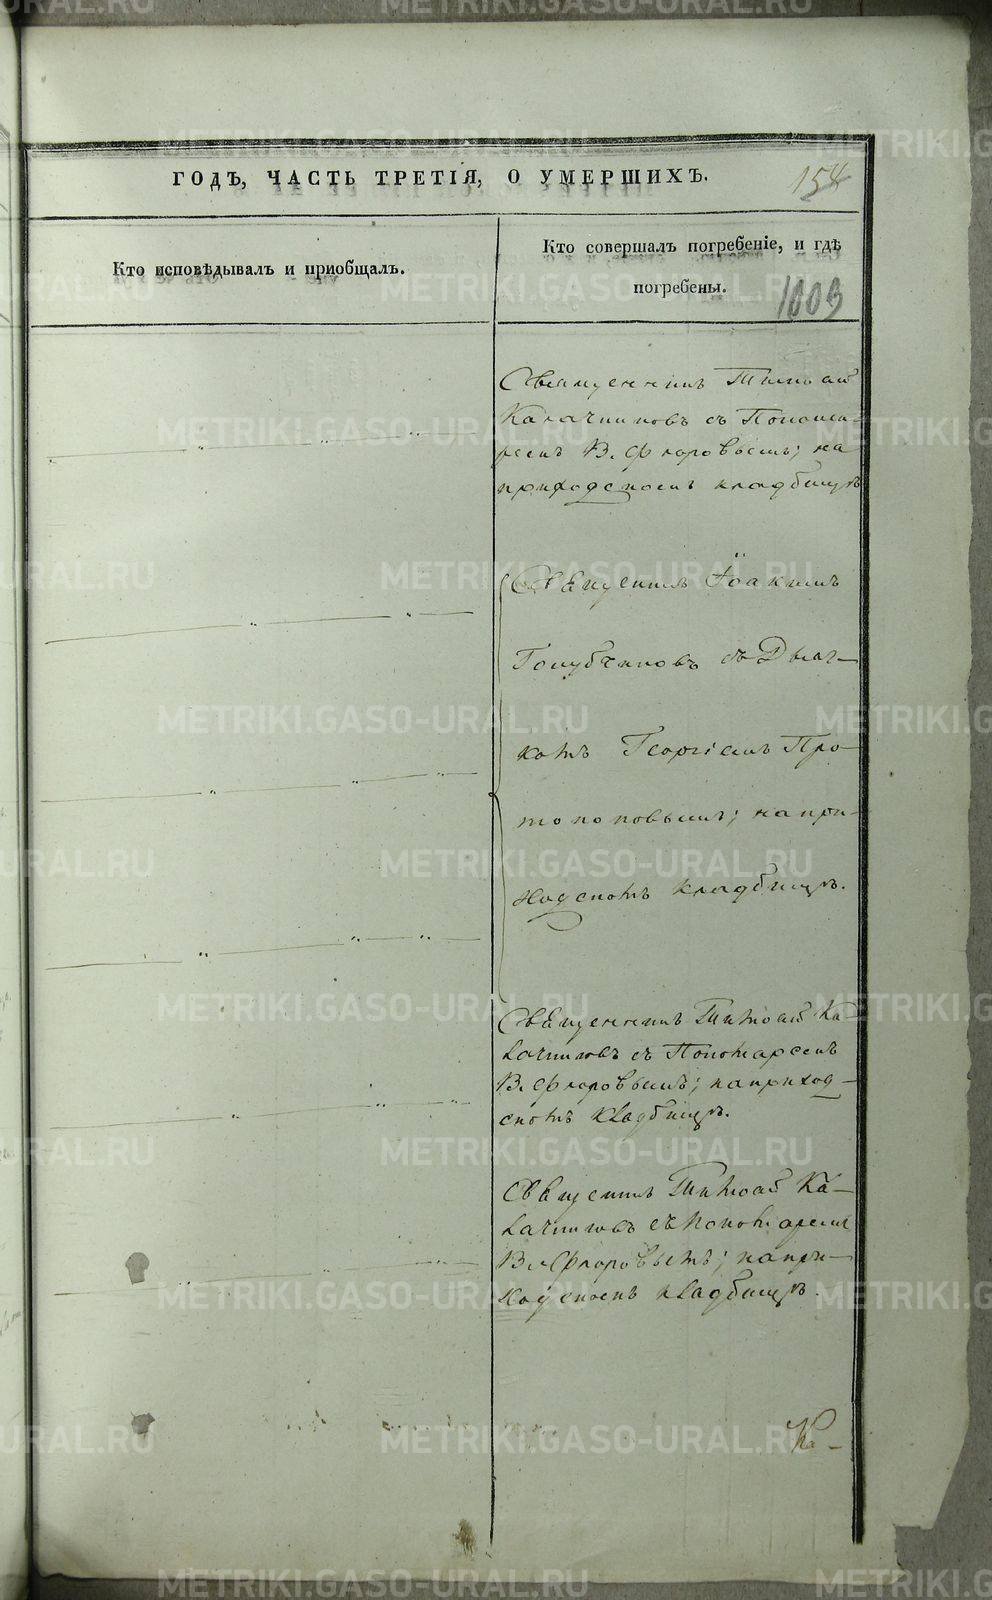 ГОДЪ, ЧАСТЬ ТРЕТІЯ, О УМЕРШИХЪ.
154
Кто исповѣдывалъ и пріобщалъ.
Кто совершалъ погребеніе, и гдѣ
погребены.
1003
Священникъ Тимоѳей
Калачниковъ съ Понома-
ремъ В. Флоровымъ; на
приходскомъ кладбищѣ
Священникъ Іоакимъ
Голубчиковъ съ Дьяч-
комъ Георгіемъ Про-
топоповымъ; на при-
ходскомъ кладбищѣ.
Священникъ Тимоѳей Ка-
лачниковъ съ Пономаремъ
В. Флоровымъ; на приход-
скомъ кладбищѣ.
Священникъ Тимоѳей Ка-
лачниковъ съ Пономаремъ
В. Флоровымъ; на при-
ходскомъ кладбищѣ.
Ка-
METRIKI.GASO-URAL.RU